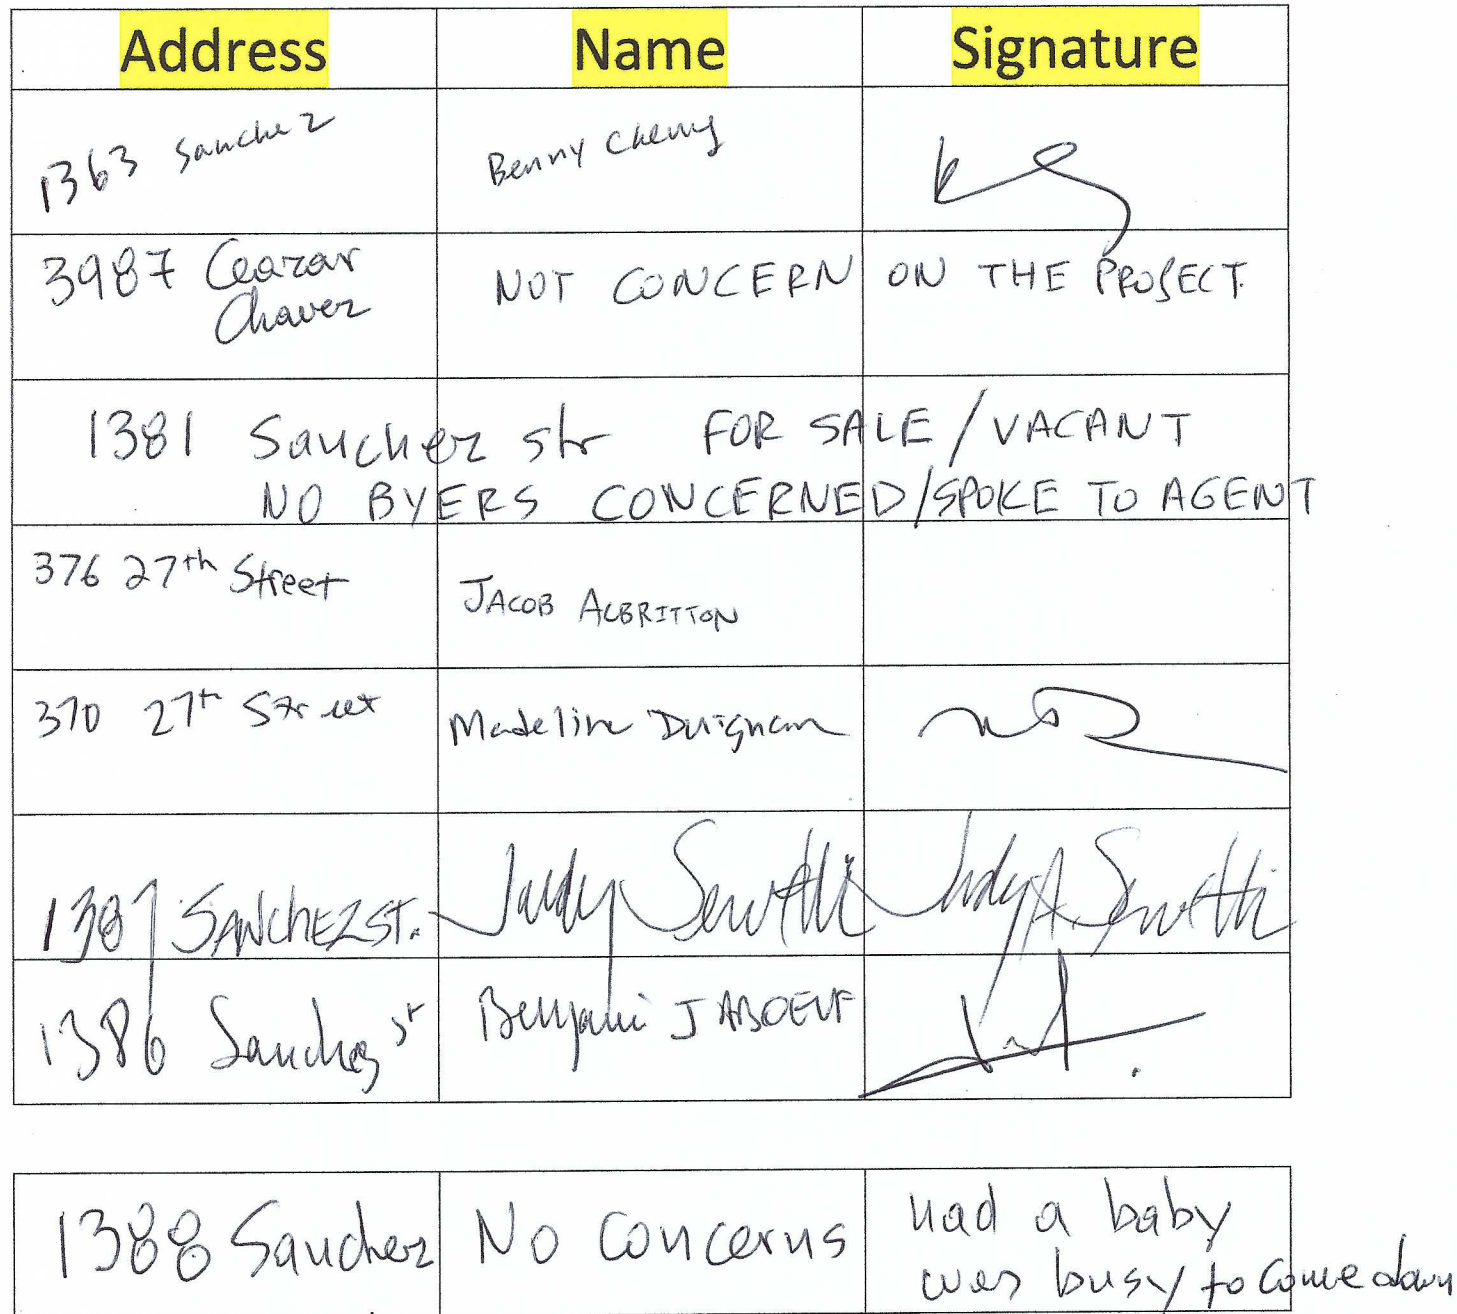 Address Name Signature
1363 Sanchez Benny Cheng
3987 Ceazar
Chavez
NOT CONCERN ON THE PROJECT
1381 Sanchez str FOR SALE / VACANT
NO BYERS CONCERNED/SPOKE TO AGENT
376 27th Street JACOB ALBRITTON
370 27th Street Madeline Duignan
1387 SANCHEZ ST. Judy
1386 Sanchez st
1388 Sanchez No Concerns had a baby
was busy to come down